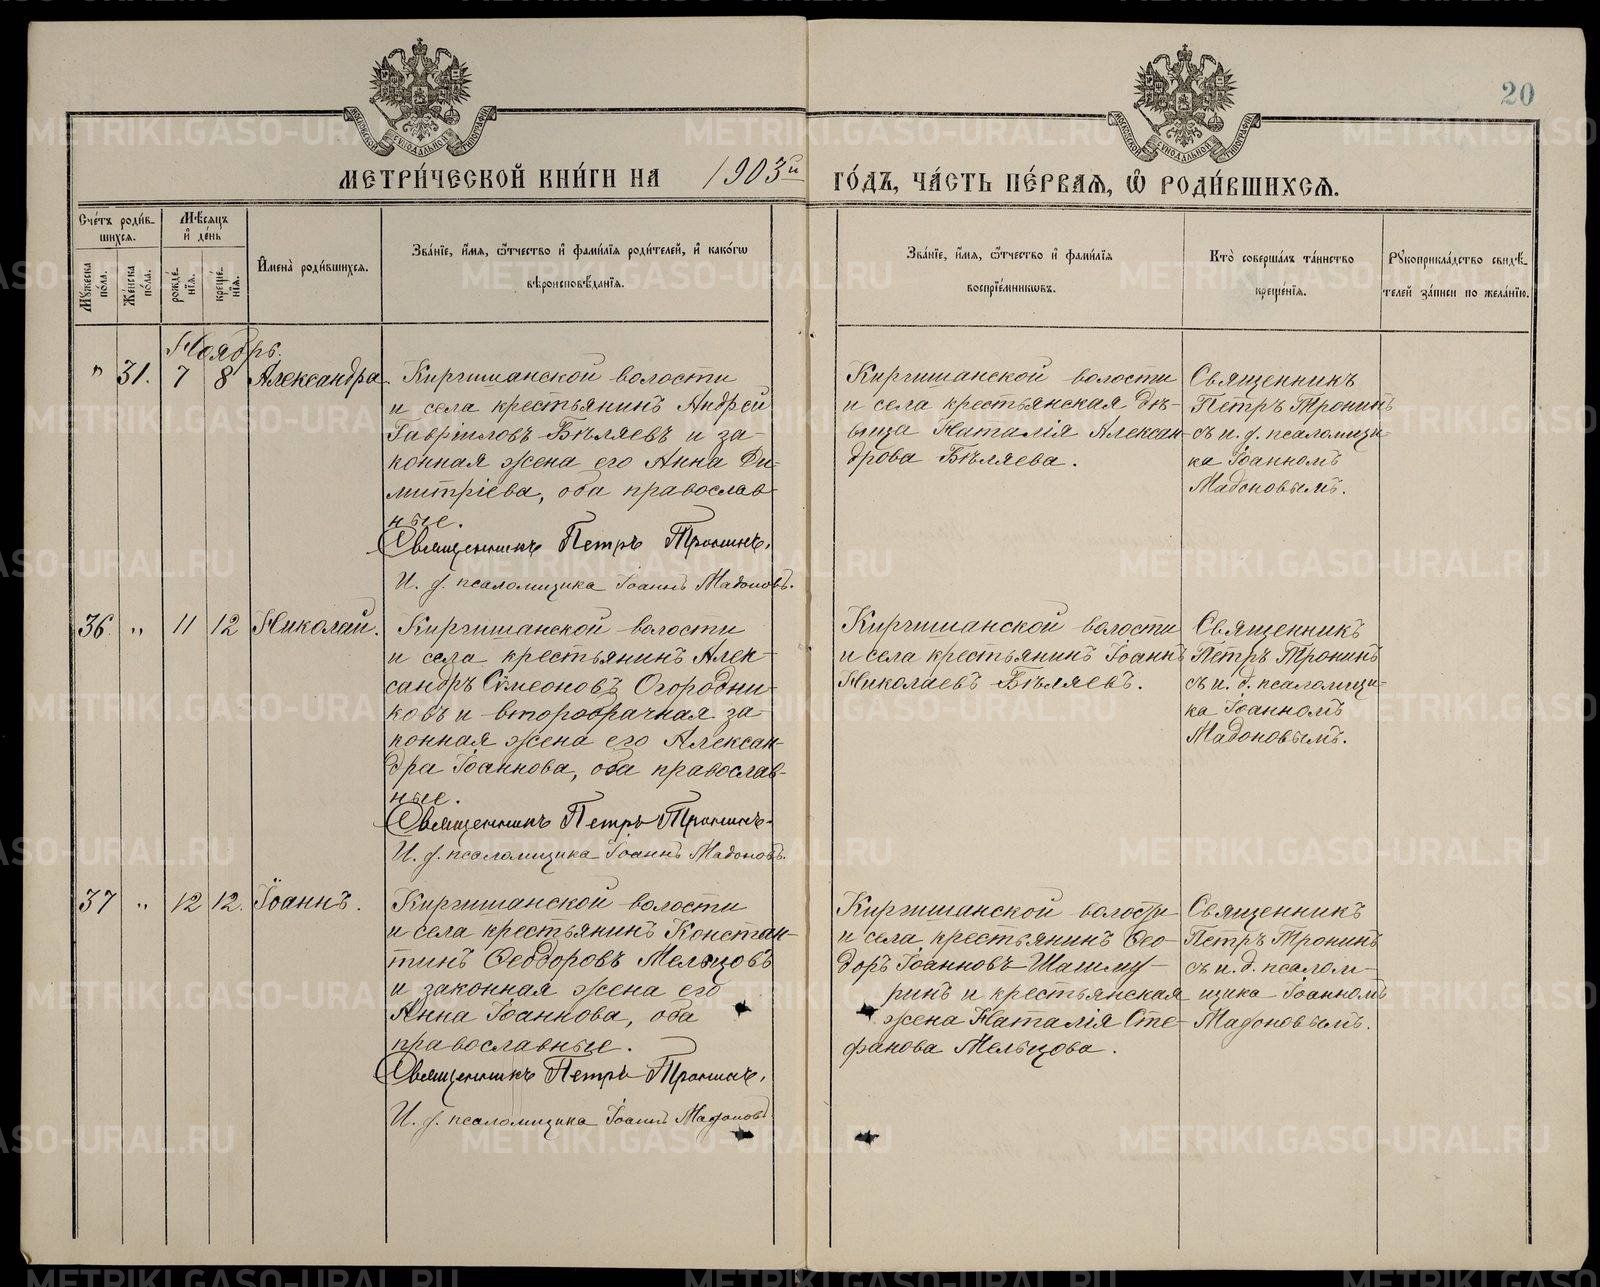 20
МЕТРИ́ЧЕСКОЙ КНИ́ГИ НА 1903й ГО́ДЪ, ЧА́СТЬ ПЕ́РВАЯ, Ѡ҆ РОДИ́ВШИХСЯ.
Сче́тъ роди́в-
шихся.
Мꙋ́жеска по́ла.
Же́нска по́ла.
Мѣ́сяцъ
и҆ де́нь
рожде́нїя.
креще́нїя.
И҆мена̀ роди́вшихся.
Зва́нїе, и҆́мя, ѻ҆́тчество и҆ фами́лїя роди́телей, и҆ како́гѡ
вѣроисповѣ́данїя.
Зва́нїе, и҆́мя, ѻ҆́тчество и҆ фами́лїя
воспрїе́мниковъ.
Кто̀ соверша́лъ та́инство
креще́нїя.
Рꙋкоприкла́дство свидѣ́-
телей за́писи по жела́нїю.
Ноябрь.
" 31. 7 8 Александра.
Киргишанской волости
и села крестьянинъ Андрей
Гавріиловъ Бѣляевъ и за-
конная жена его Анна Ди-
митріева, оба православ-
ные.
Священникъ Петръ Тронинъ.
И. д. псаломщика Іоаннъ Мадоновъ.
Киргишанской волости
и села крестьянская дѣ-
вица Наталія Алексан-
дрова Бѣляева.
Священникъ
Петръ Тронинъ
съ и. д. псаломщи-
ка Іоанномъ
Мадоновымъ.
36. " 11 12 Николай.
Киргишанской волости
и села крестьянинъ Алек-
сандръ Сѵмеоновъ Огородни-
ковъ и второбрачная за-
конная жена его Алексан-
дра Іоаннова, оба православ-
ные.
Священникъ Петръ Тронинъ.
И. д. псаломщика Іоаннъ Мадоновъ.
Киргишанской волости
и села крестьянинъ Іоаннъ
Николаевъ Бѣляевъ.
Священникъ
Петръ Тронинъ
съ и. д. псаломщи-
ка Іоанномъ
Мадоновымъ.
37 " 12 12. Іоаннъ.
Киргишанской волости
и села крестьянинъ Констан-
тинъ Ѳеодоровъ Мельцовъ
и законная жена его
Анна Іоаннова, оба
православные.
Священникъ Петръ Тронинъ.
И. д. псаломщика Іоаннъ Мадоновъ.
Киргишанской волости
и села крестьянинъ Ѳео-
доръ Іоанновъ Шашму-
ринъ и крестьянская
жена Наталія Сте-
фанова Мельцова.
Священникъ
Петръ Тронинъ
съ и. д. псалом-
щика Іоанномъ
Мадоновымъ.
METRIKI.GASO-URAL.RU